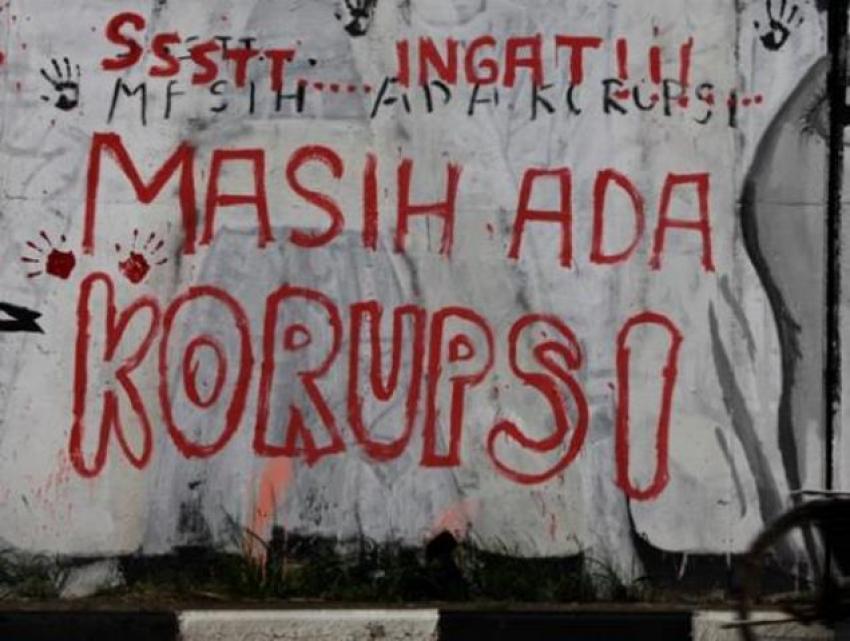 SSSTT..... INGAT!!!...
MASIH ADA KORUPSI
MASIH ADA
KORUPSI